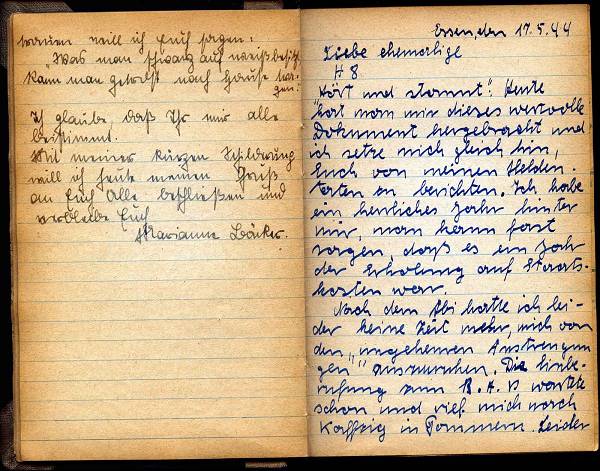 trauen will ich Euch sagen:
"Was man schwarz auf weiß besitzt
kann man getrost nach Hause tra-
gen."
Ich glaube daß Ihr mir alle
beistimmt.
Mit meiner kurzen Schilderung
will ich heute meinen Gruß
an Euch Alle beschließen und
verbleibe Euch
Marianne Bäcker.
Essen, den 17.5.44
Liebe ehemalige
H 8
"Hört und staunt": Heute
hat man mir dieses wertvolle
Dokument hergebracht und
ich setze mich gleich hin,
Euch von meinen Helden-
taten zu berichten. Ich habe
ein herrliches Jahr hinter
mir, man kann fast
sagen, daß es ein Jahr
der Erholung auf Staats-
kosten war.
Nach dem Abi hatte ich lei-
der keine Zeit mehr, mich von
den "ungeheuren Anstrengun
gen" auszuruhen. Die Einbe-
rufung zum R.A.D wartete
schon und rief mich nach
in Pommern. Leider